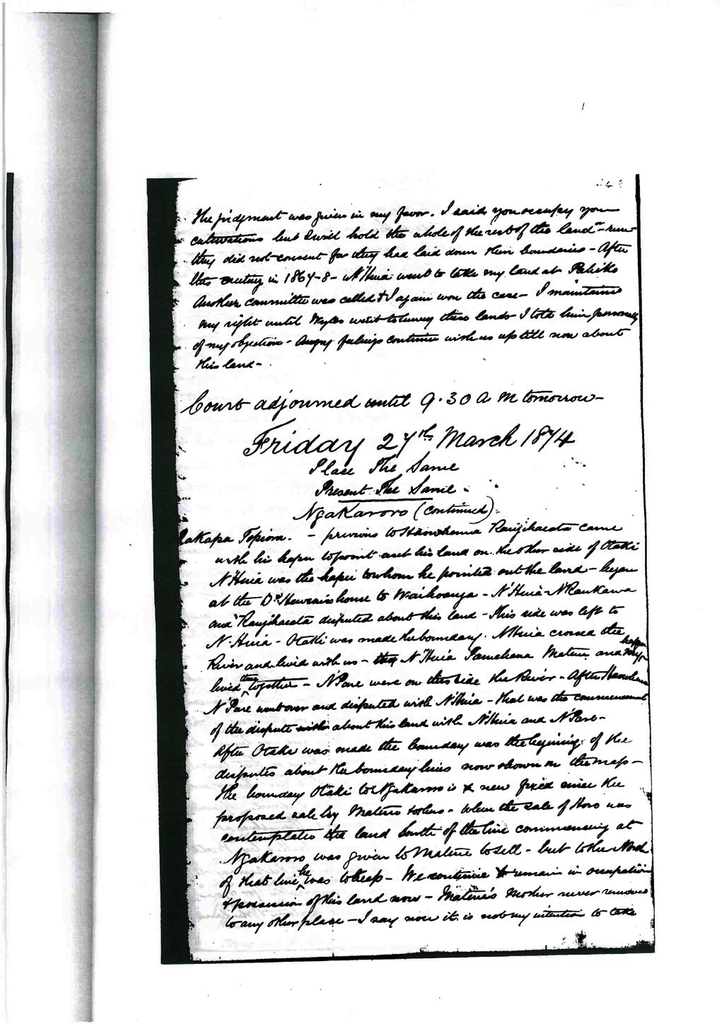 the judgment was given in my favor. I said you occupy your
cultivations but I will hold the whole of the rest of the land
they did not consent for they had laid down their boundaries - After
this in 1867-8 - N'Huia went to take my land at
Another committee was called & I again won the case - I maintained
my right until Wyles went to survey these lands - I told him personally
of my objections - Angry feelings continue with us up till now about
this land -
Court adjourned until 9.30 A M tomorrow -
Friday 27th March 1874
Place The Same
Present The Same -
Ngakaroro (continued)
Topiora. - previous to Haowhenua Rangihaeata came
with his hapu to point out his land on the other side of Otaki
N'Huia was the hapu to whom he pointed out the land - began
at the Dr house to Waihoanga - N'Huia - N'Raukawa
and Rangihaeata disputed about this land - this side was left to
N'Huia - Otaki was made the boundary. N'Huia crossed the
River and lived with us - N'Huia Pamehana Matene and my hapu
lived there together - N'Pare were on this side the River - After
N'Pare went over and disputed with N'Huia - that was the commencement
of the dispute about this land with N'Huia and N'Pare -
After Otaki was made the boundary was the beginning of the
disputes about the boundary lines now shown on the map -
the boundary Otaki to Ngakaroro is new fixed since the
proposed sale by Matene & others - when the sale of was
contemplated the land South of the line commencing at
Ngakaroro was given to Matene to sell - but to the North
of that line he was to keep - We continue to remain in occupation
& possession of this land now - Matene's Mother never removed
to any other place - I say now it is not my intention to take